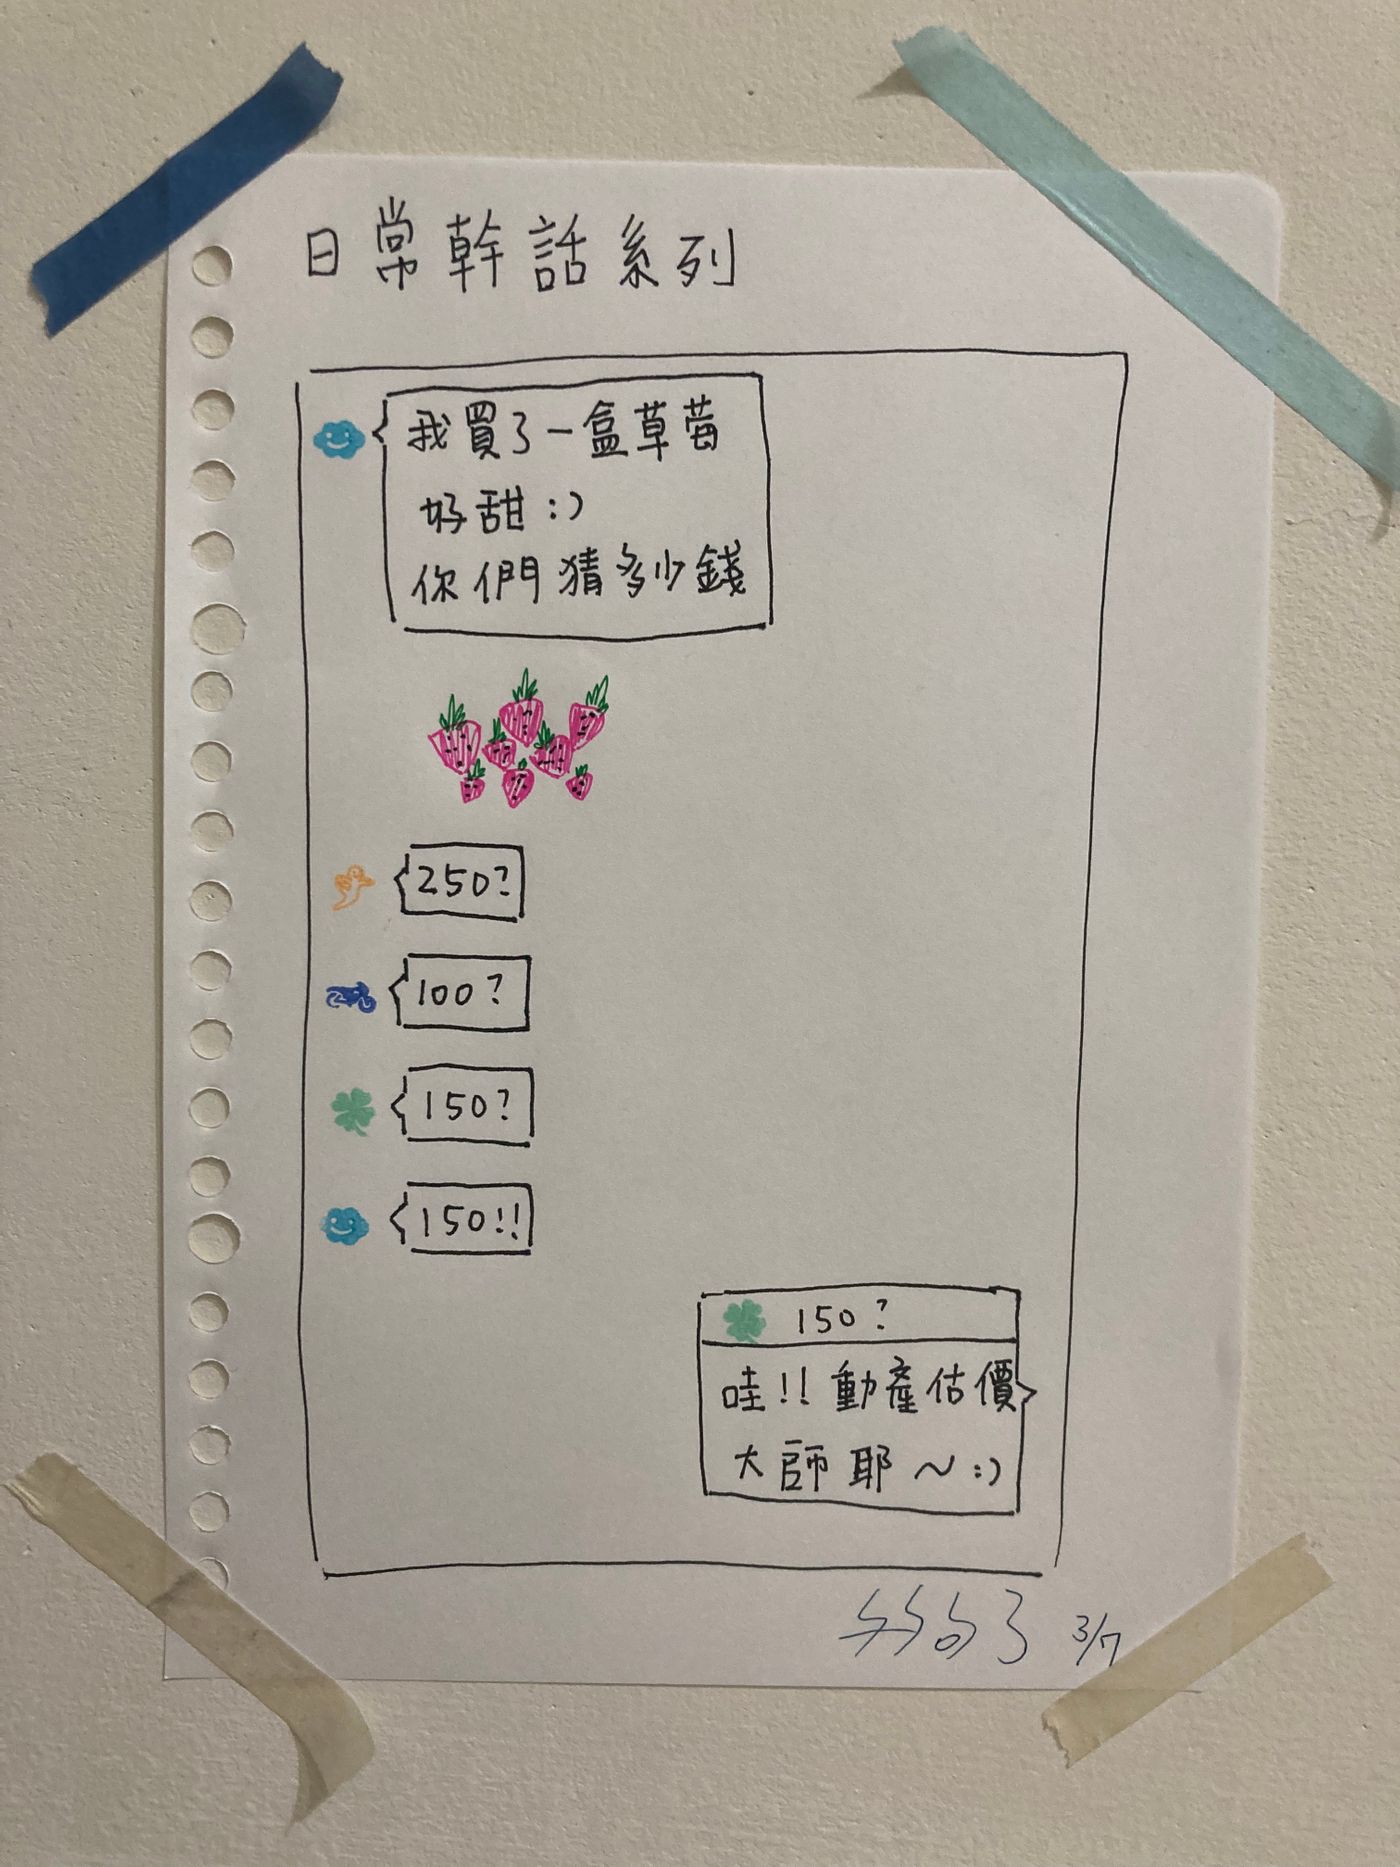 日常幹話系列
我買了一盒草莓
好甜:)
你們猜多少錢
250?
100?
150?
150!!
150?
哇!!動產估價
大師耶～:)
3/7